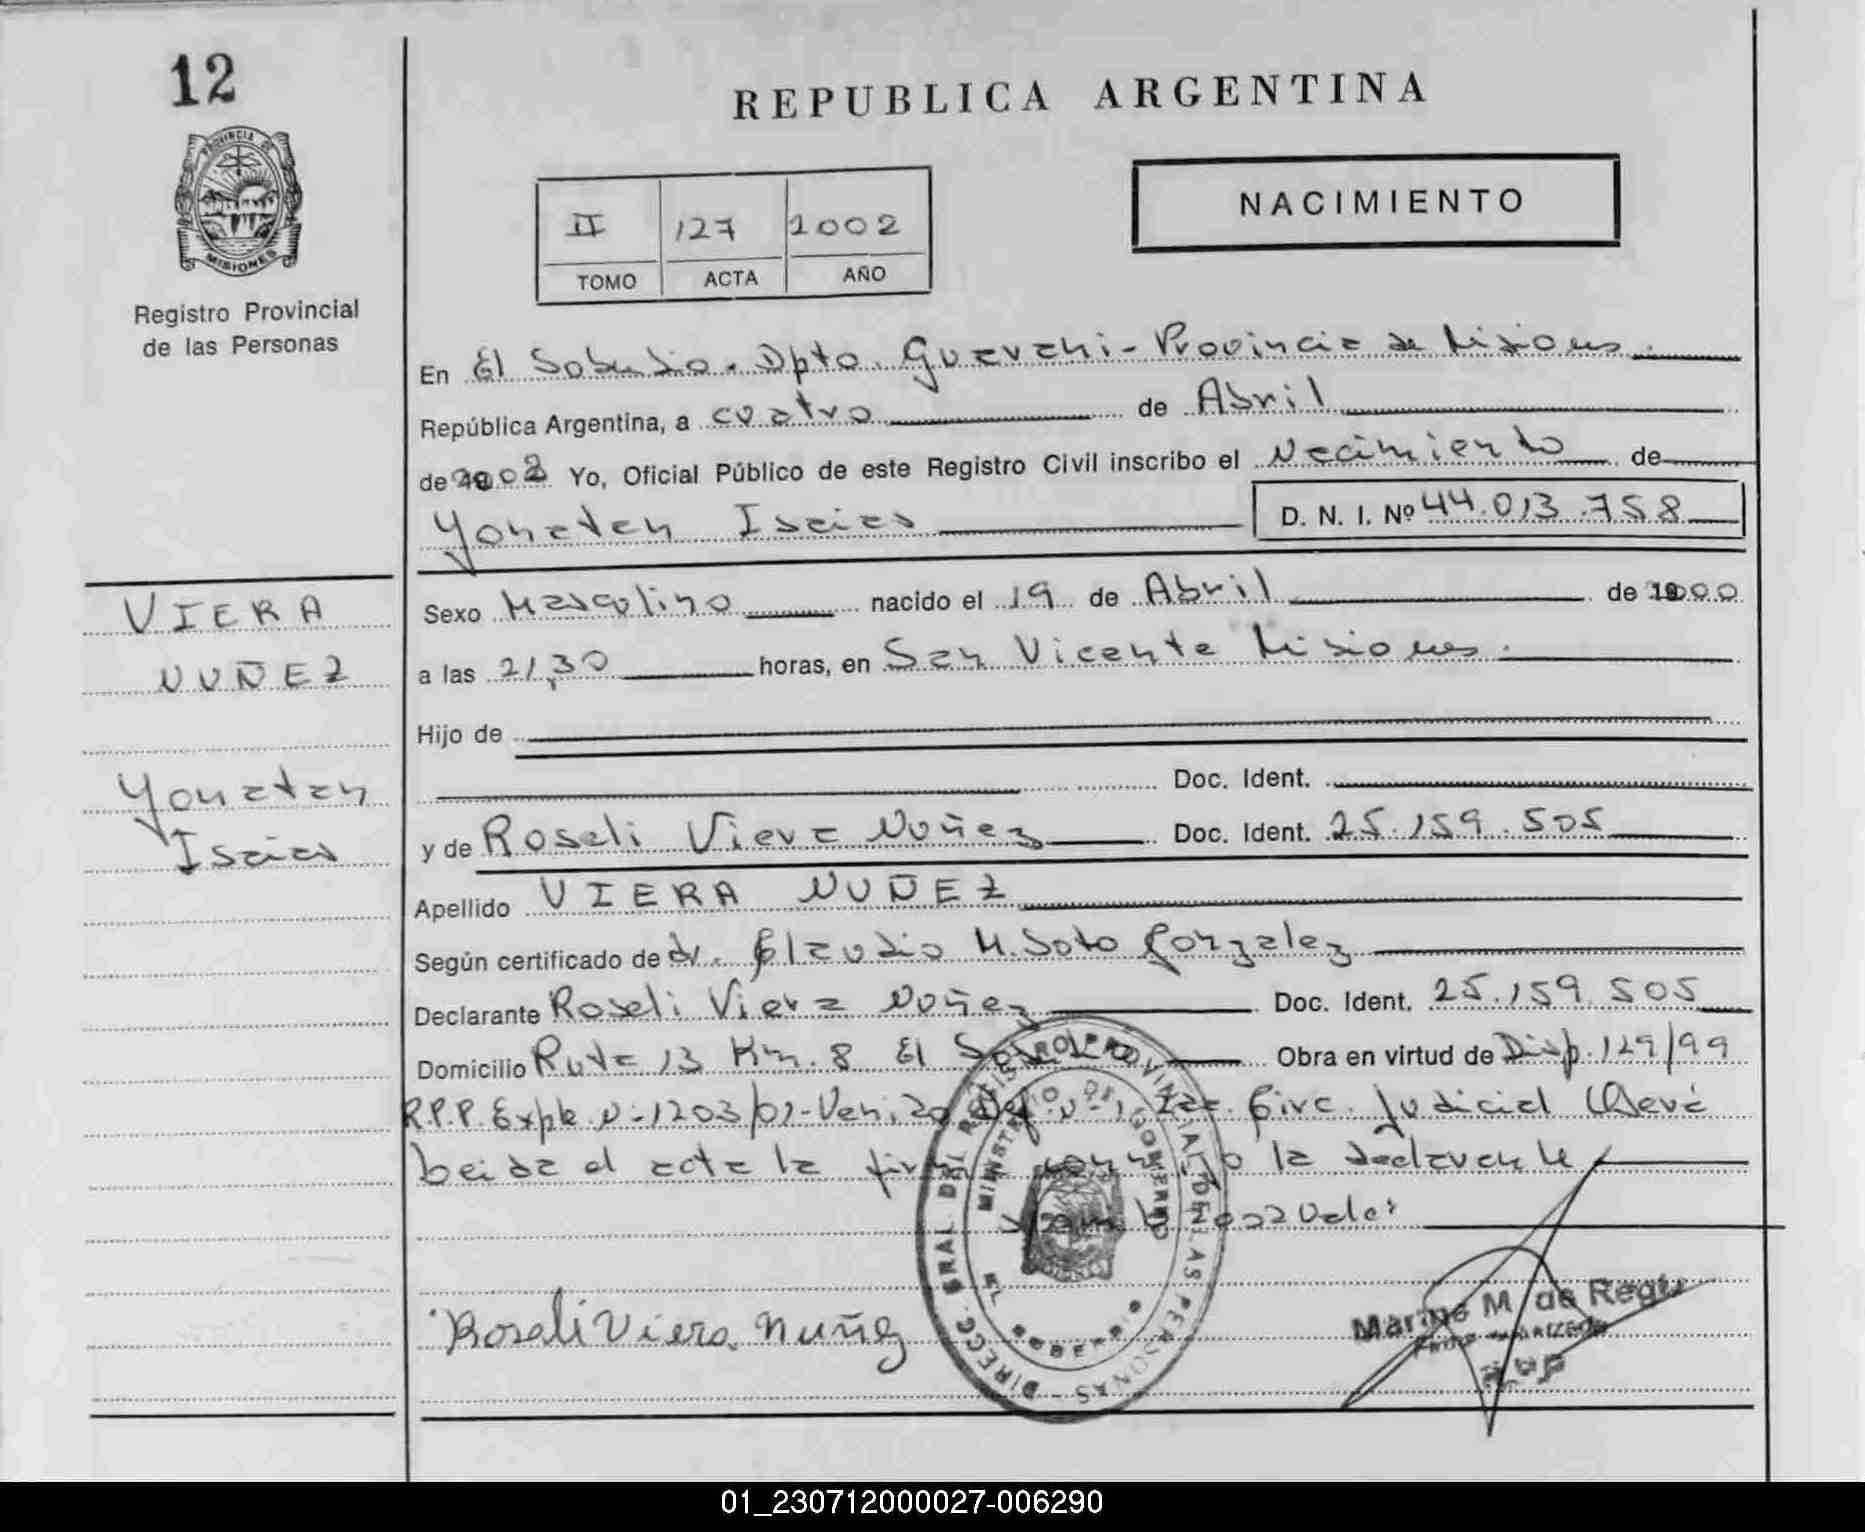 12
PROVINCIA DE
MISIONES
Registro Provincial
de las Personas
REPUBLICA ARGENTINA
II 127 2002
TOMO ACTA AÑO
NACIMIENTO
En El Soberbio. Dpto. Guarani - Provincia de Misiones.
República Argentina, a cuatro de Abril
de 2002 Yo, Oficial Público de este Registro Civil inscribo el Nacimiento de
Yonatan Isaias D. N. I. Nº 44.013.758
VIERA
NUÑEZ
Yonatan
Isaias
Sexo Masculino nacido el 19 de Abril de 2000
a las 21,30 horas, en San Vicente Misiones.
Hijo de
Doc. Ident.
y de Roseli Viera Nuñez Doc. Ident. 25.159.505
Apellido VIERA NUÑEZ
Según certificado de dr. Claudio M. Soto Gonzalez
Declarante Roseli Viera Nuñez Doc. Ident. 25.159.505
Domicilio Ruta 13 Km. 8 El Soberbio Obra en virtud de Disp. 129/99
R.P.P. Expte Nº 1203/01- Circ. Judicial Oberá
Leida el acta la firma conmigo la declarante
Roseli Viera Nuñez
DIRECC. GRAL DEL REGISTRO PROVINCIAL DE LAS PERSONAS
MINISTERIO DE GOBIERNO
EL SOBERBIO
M. de Regis
01_230712000027-006290